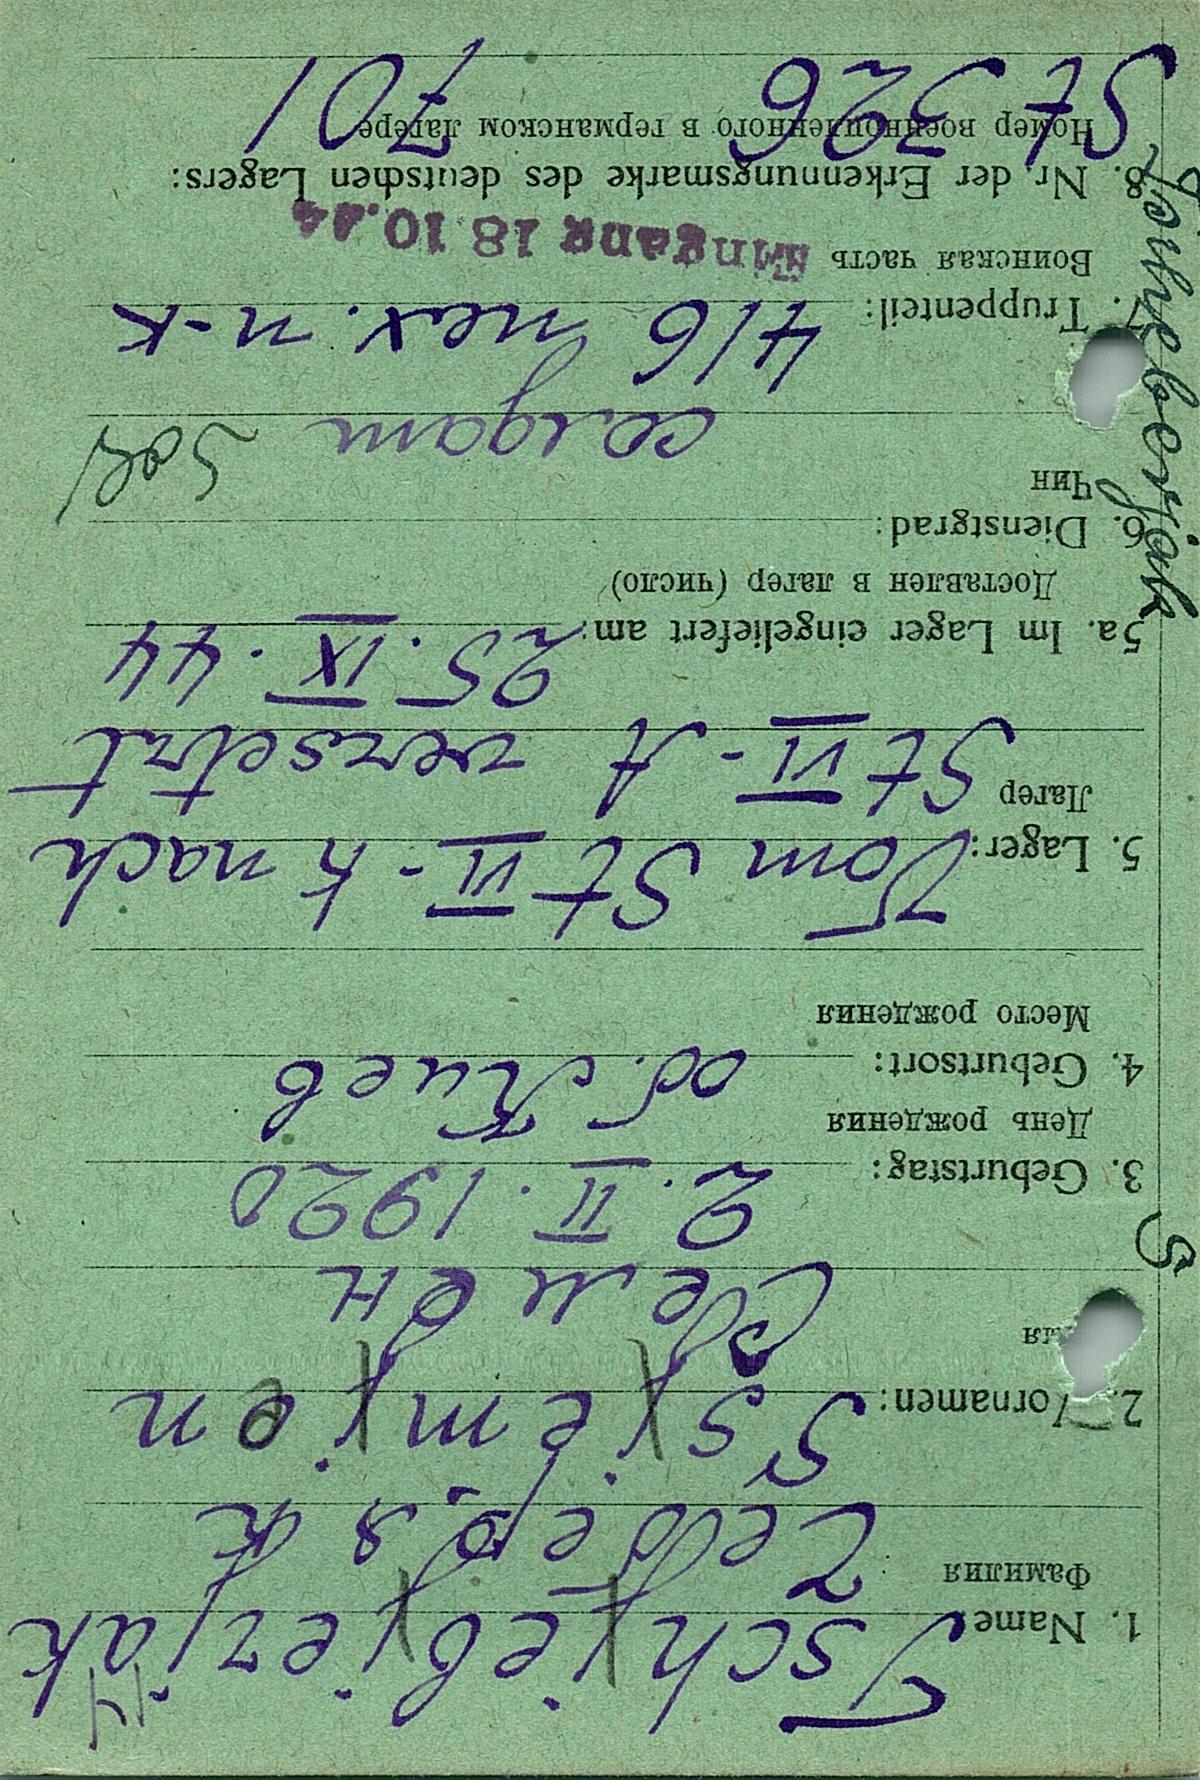 1. Name
Tschjebjerjak
Фамилия
Чеберяк
2. Vornamen:
Ssjemjen
Семен
3. Geburtstag: 2. II. 1920
День рождения
4. Geburtsort: об. Киев
Место рождения
5. Lager: Vom St VI-K nach
Лагер St VI-A versetzt
5a. Im Lager eingeliefert am: 25. IX. 44
Доставлен в лагер (число)
6. Dienstgrad:
Чин
солдат Sol
7. Truppenteil: 416 мех. п-к
Воинская часть
Eingang 18.10.44
8. Nr. der Erkennungsmarke des deutschen Lagers:
Номер военнопленного в германском лагере
St 326 701
Tscheberjak
S